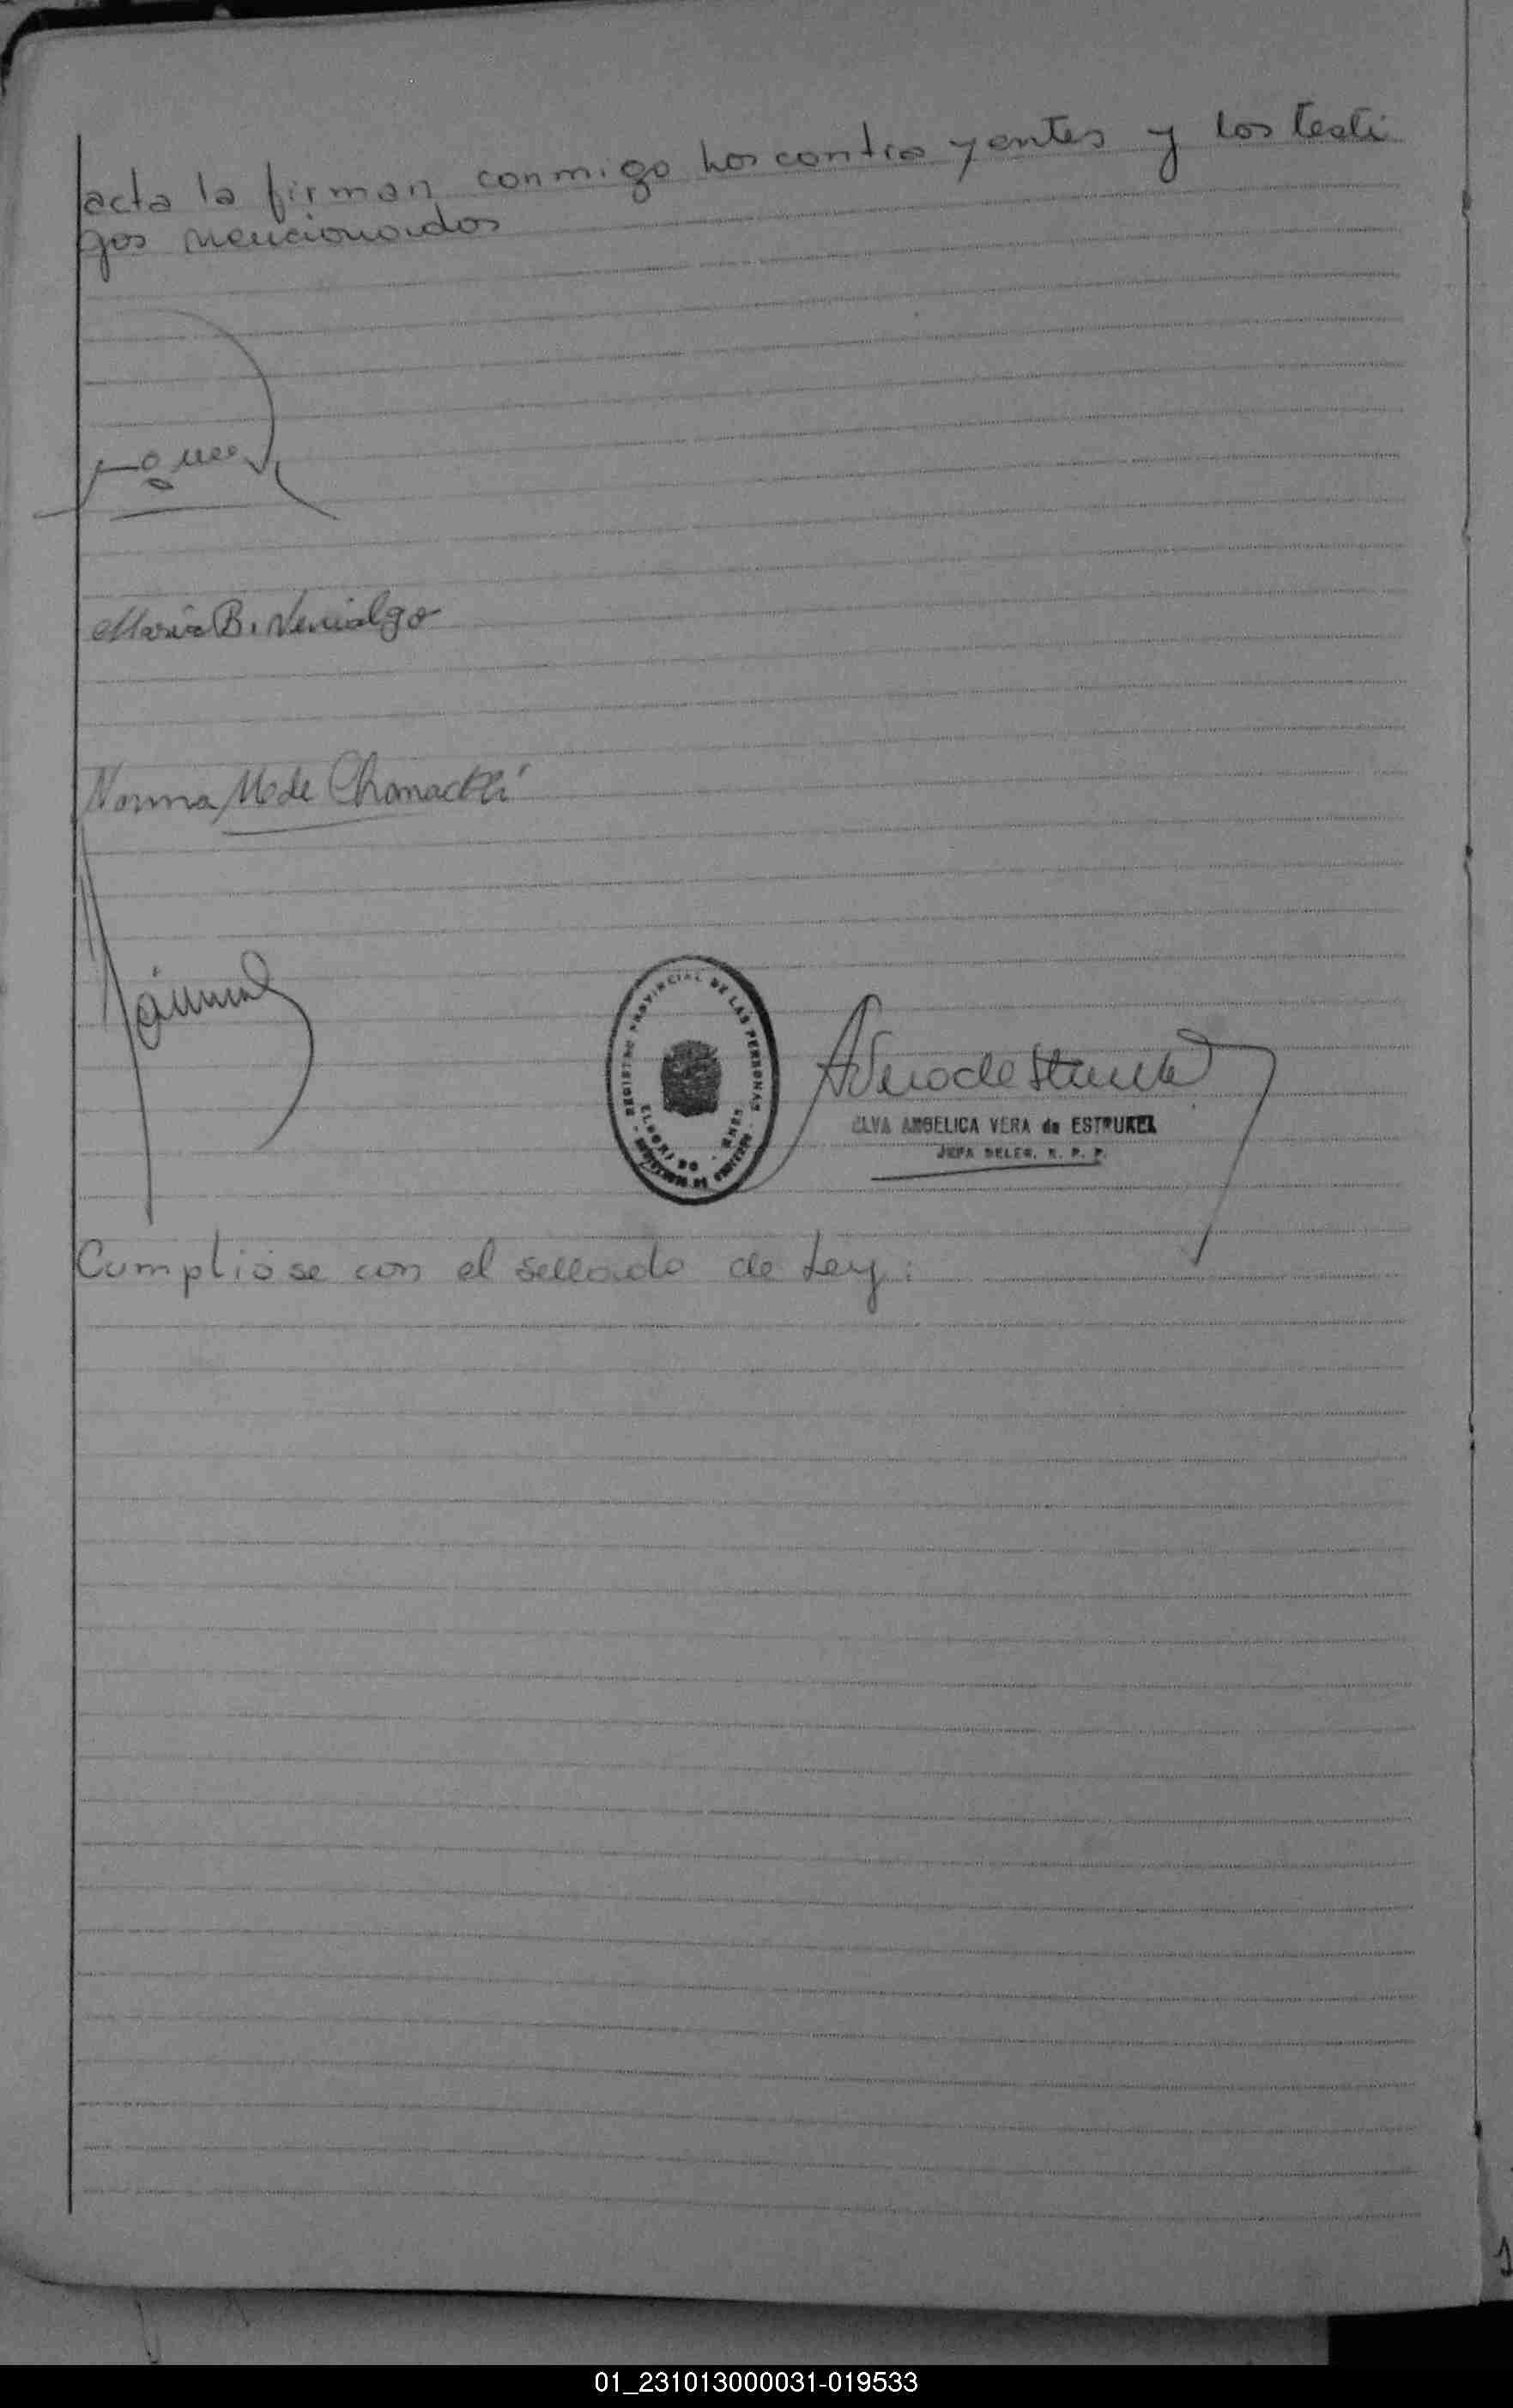 acta la firman conmigo los contra yentes y los testi
gos mencionados
Maria B. Venialgo
Norma M de Chamacthi
REGISTRO PROVINCIAL DE LAS PERSONAS
ELDORADO
ELVA ANGELICA VERA de ESTRUKEL
JEFA DELEG. R. P. P.
Cumplióse con el sellado de Ley:
01_231013000031-019533